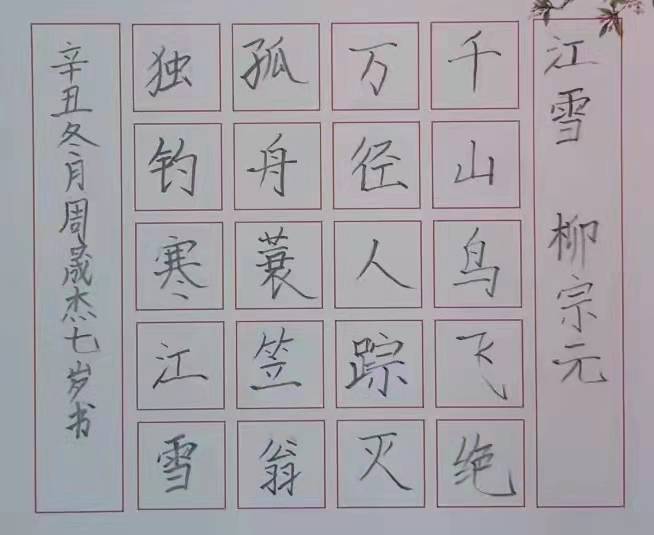 江雪 柳宗元
千山鸟飞绝
万径人踪灭
孤舟蓑笠翁
独钓寒江雪
辛丑冬月周晟杰七岁书